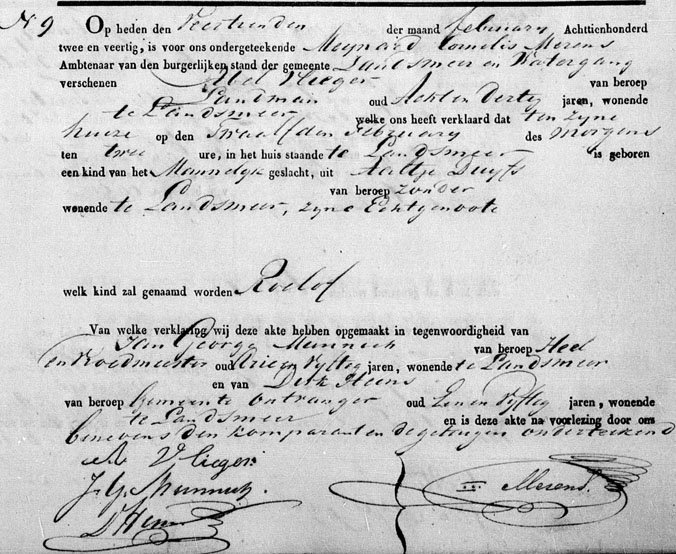 N 9 Op heden den Veertienden der maand februarij Achttienhonderd
twee en veertig, is voor ons ondergeteekende Meynard Cornelis Merens
Ambtenaar van den burgerlijken stand der gemeente Landsmeer en Watergang
verschenen Abel Vlieger van beroep
Landman oud Acht en Dertig jaren, wonende
te Landsmeer welke ons heeft verklaard dat ten zyne
huize op den twaalfden February des morgens
ten twee ure, in het huis staande te Landsmeer is geboren
een kind van het Mannelyk geslacht, uit Aaltje Duyfs
van beroep zonder
wonende te Landsmeer, zyne Echtgenoote
welk kind zal genaamd worden Roelof
Van welke verklaring wij deze akte hebben opgemaakt in tegenwoordigheid van
Jan George Munnich van beroep Heel
en Vroedmeester oud Drie en Vyftig jaren, wonende te Landsmeer
en van Dirk Heens
van beroep Gemeente ontvanger oud Een en Vyftig jaren, wonende
te Landsmeer en is deze akte na voorlezing door ons
benevens den komparant en de getuigen onderteekend
A Vlieger
J. G. Munnich.
D Heens
Merens